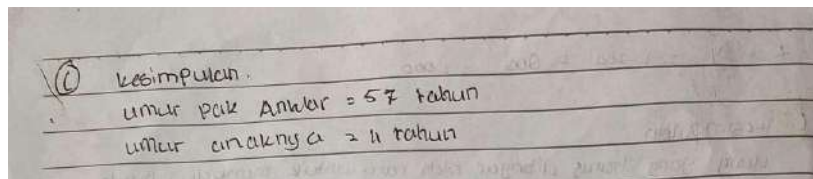 C Kesimpulan.
umur pak Anwar = 57 tahun
umur anaknya = 11 tahun